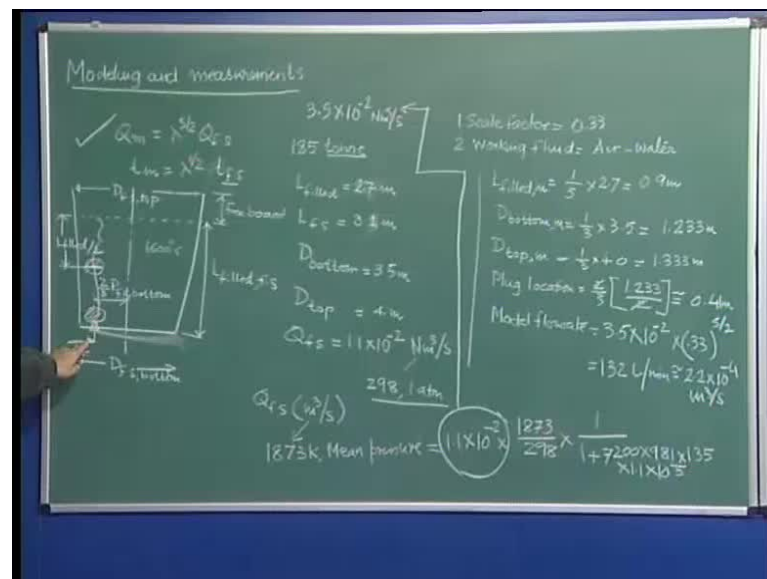 Modeling and measurements
✓ Qm = λ^5/2 Qf.s
tm = λ^1/2 tf.s
freeboard
1600°c
Lfilled/2
Lfilled, f.s
Df.s, bottom
3.5×10^-2 Nm³/s
185 tonne
Lfilled = 2.7 m
Lf.s = 3.1 m
Dbottom = 3.5 m
Dtop = 4 m
Qf.s = 1.1×10^-2 Nm³/s
298, 1 atm
Qf.s (m³/s)
1873 K, Mean pressure = 1.1×10^-2 × 1873/298 × 1/1+7200×9.81×1.35×1.1×10^-5
1 Scale factor = 0.33
2 Working fluid = Air-Water
Lfilled,m = 1/3 × 2.7 = 0.9 m
Dbottom,m = 1/3 × 3.5 = 1.233 m
Dtop,m = 1/3 × 4.0 = 1.333 m
Plug location = 2/3 [1.233/2] ≅ 0.4 m
Model flowrate = 3.5×10^-2 × (.33)^5/2
= 132 L/min ≅ 22×10^-4 m³/s